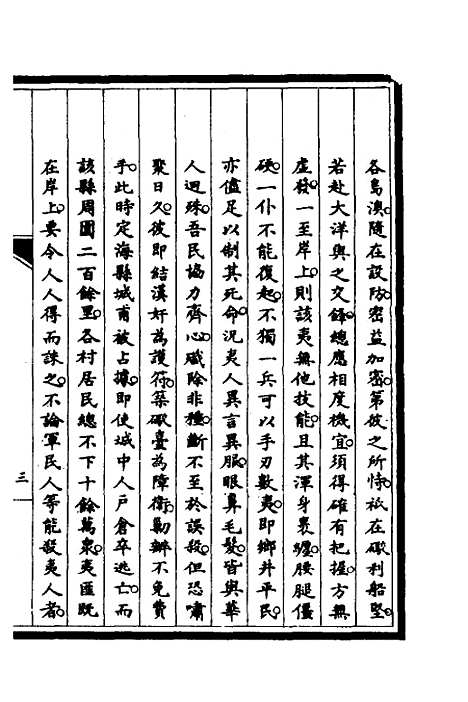 各島澳隨在設防密益加密第彼之所恃祇在礮利船堅
若赴大洋與之交鋒總應相度機宜須得確有把握方無
虛發一至岸上則該夷無他技能且其渾身裹纏腰腿僵
硬一仆不能復起不獨一兵可以手刃數夷即鄉井平民
亦儘足以制其死命況夷人異言異服眼鼻毛髮皆與華
人迥殊吾民協力齊心殲除非種斷不至於誤殺但恐嘯
聚日久彼即結漢奸為護符築礮臺為障衛勦辦不免費
手此時定海縣城甫被占據即使城中人戶倉卒逃亡而
該縣周圍二百餘里各村居民總不下十餘萬衆夷匪既
在岸上要令人人得而誅之不論軍民人等能殺夷人者
三